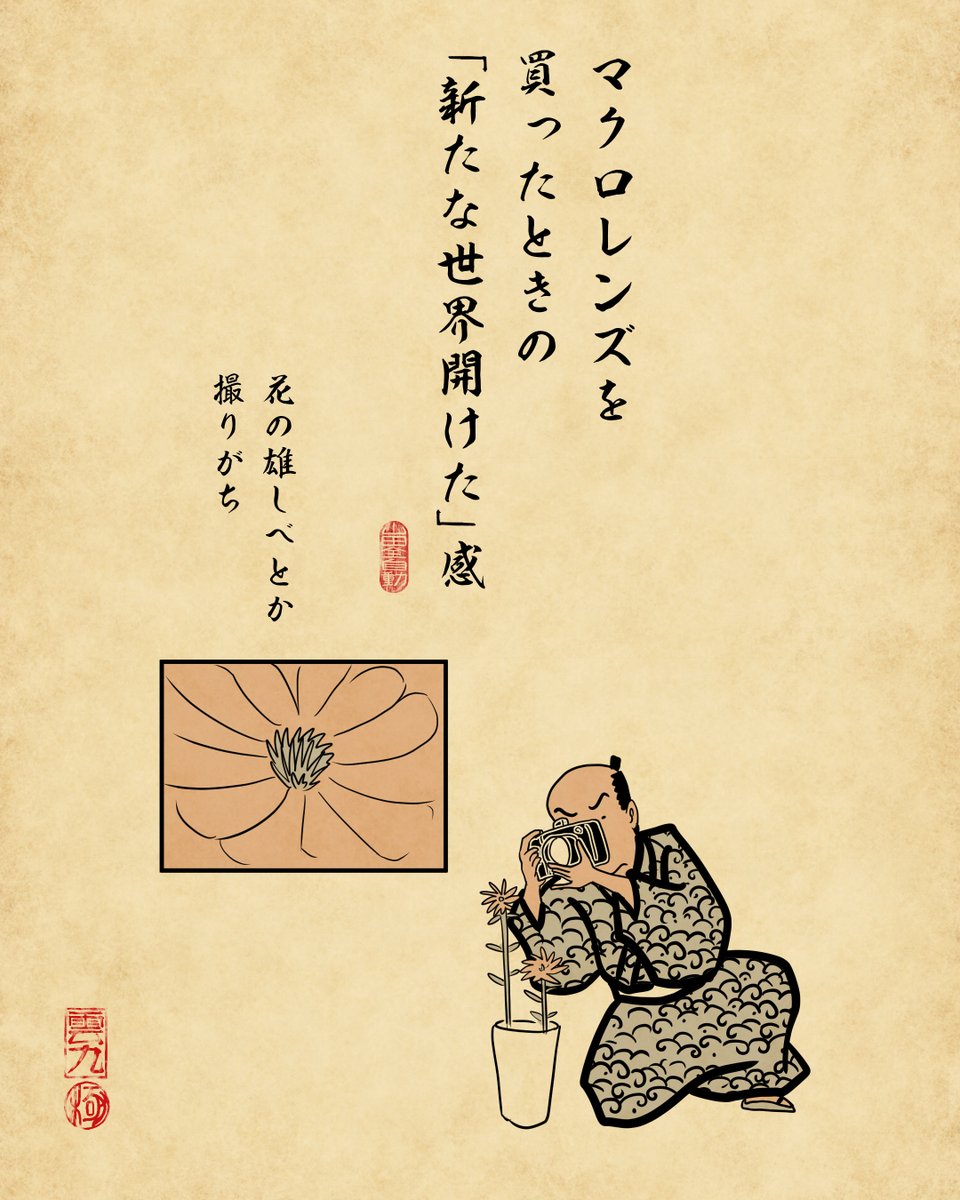 マクロレンズを
買ったときの
「新たな世界開けた」感
花の雄しべとか
撮りがち